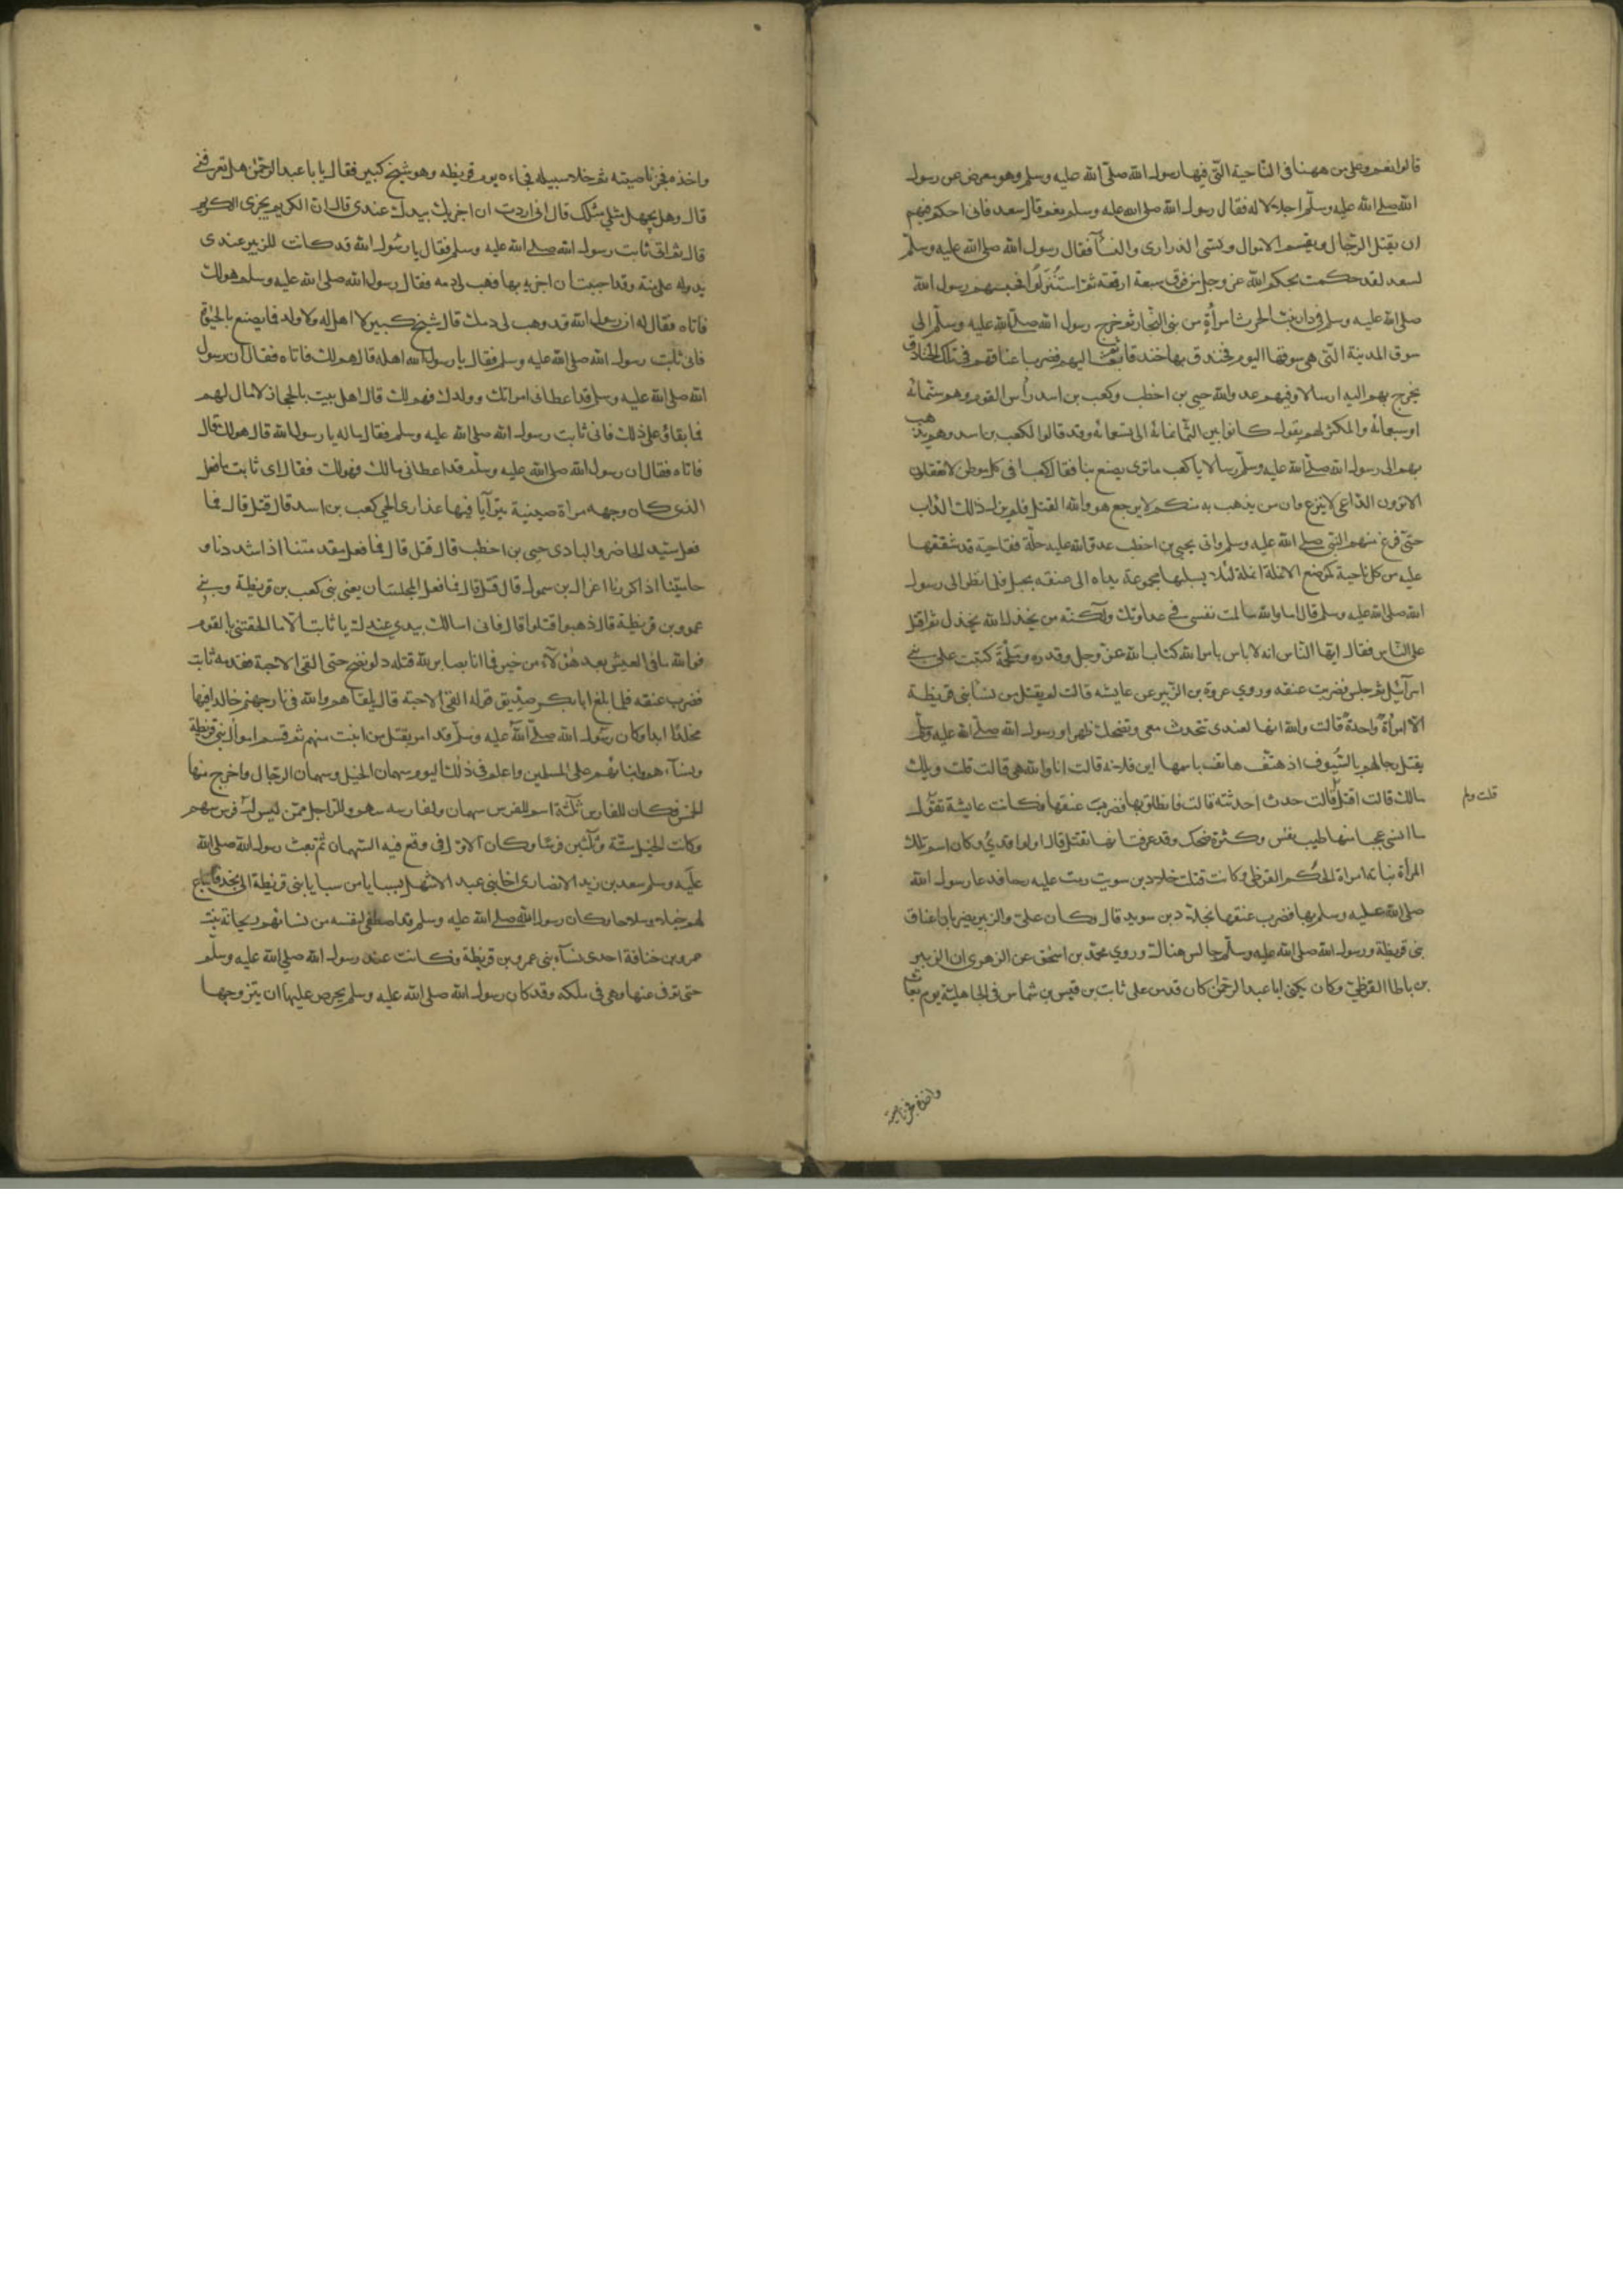 قالوا نعم وعلى من ههنا فى الناحية التى فيها رسول الله صلى الله عليه وسلم وهو معرض عن رسول
الله صلى الله عليه وسلم اجلالا له فقال رسول الله صلى الله عليه وسلم نعم قال سعد فانى احكم فيهم
ان يقتل الرجال ويقسم الاموال وتسبى الذرارى والنسآء فقال رسول الله صلى الله عليه وسلم
لسعد لقد حكمت بحكم الله عز وجل من فوق سبعة ارقعة ثم استنزلوا فحبسهم رسول الله
صلى الله عليه وسلم فى دار بنت الحرث امرأة من بنى النجار ثم خرج رسول الله صلى الله عليه وسلم الى
سوق المدينة التى هى سوقها اليوم فخندق بها خندقا ثم بعث اليهم فضرب اعناقهم فى تلك الخنادق
يخرج بهم اليه ارسالا وفيهم عدو الله حيى بن اخطب وكعب بن اسد رأس القوم وهم ستمائة
او سبعمائة والمكثر لهم يقول كانوا بين الثمانمائة الى تسعمائة وقد قالوا لكعب بن اسد وهم يذهب
بهم الى رسول الله صلى الله عليه وسلم ارسالا يا كعب ما ترى يصنع بنا فقال كعب افى كل موطن لا تعقلون
الا ترون الداعى لا ينزع وان من يذهب به منكم لا يرجع هو والله القتل فلم يزل ذلك الداب
حتى فرغ منهم النبى صلى الله عليه وسلم واتى بحيى بن اخطب عدو الله عليه حلة فقاحية قد شققها
عليه من كل ناحية كموضع الانملة انملة لئلا يسلبها مجموعة يداه الى عنقه بحبل فلما نظر الى رسول
الله صلى الله عليه وسلم قال اما والله ما لمت نفسى فى عداوتك ولكنه من يخذل الله يخذل ثم اقبل
على الناس فقال ايها الناس انه لا باس بامر الله كتاب الله عز وجل وقدره وملحمة كتبت على بنى
اسرآئيل ثم جلس فضربت عنقه وروى عروة بن الزبير عن عايشة قالت لم يقتل من نسآء بنى قريظة
الا امرأة واحدة قالت والله انها لعندى تتحدث معى وتضحك ظهرا ورسول الله صلى الله عليه وسلم
يقتل رجالهم بالسيوف اذ هتف هاتف باسمها اين فلانة قالت انا والله هى قالت قلت ويلك
مالك قالت اقتل قالت حدث احدثته قالت فانطلق بها فضربت عنقها فكانت عايشة تقول
ما انسى عجبا منها طيب نفس وكثرة ضحك وقد عرفت انها تقتل قال الواقدى وكان اسم تلك
المرأة نباتة امراة الحكم القرظى وكانت قتلت خلاد بن سويد رمت عليه رحا فدعا رسول الله
صلى الله عليه وسلم بها فضرب عنقها بخلاد بن سويد قال وكان على والزبير يضربان اعناق
بنى قريظة ورسول الله صلى الله عليه وسلم جالس هنالك وروى محمد بن اسحق عن الزهرى ان الزبير
بن باطا القرظى وكان يكنى ابا عبد الرحمن كان قد من على ثابت بن قيس بن شماس فى الجاهلية يوم بعاث
قلت ولم
واخذه فجز ناصيته
واخذه فجز ناصيته ثم خلا سبيله فجاءه يوم قريظه وهو شيخ كبير فقال يابا عبد الرحمن هل تعرفنى
قال وهل يجهل مثلى مثلك قال انى اردت ان اجزيك بيدك عندى قال ان الكريم يجزى الكريم
قال ثم اتى ثابت رسول الله صلى الله عليه وسلم فقال يا رسول الله قد كانت للزبير عندى
يد وله على منة وقد احببت ان اجزيه بها فهب لى دمه فقال رسول الله صلى الله عليه وسلم هو لك
فاتاه فقال له ان رسول الله قد وهب لى دمك قال شيخ كبير لا اهل له ولا ولد فما يصنع بالحيوة
فاتى ثابت رسول الله صلى الله عليه وسلم فقال يا رسول الله اهله قال هم لك فاتاه فقال ان رسول
الله صلى الله عليه وسلم قد اعطانى امراتك وولدك فهم لك قال اهل بيت بالحجاز لا مال لهم
فما بقاؤهم على ذلك فاتى ثابت رسول الله صلى الله عليه وسلم فقال ماله يا رسول الله قال هو لك قال
فاتاه فقال ان رسول الله صلى الله عليه وسلم قد اعطانى مالك فهو لك فقال اى ثابت ما فعل
الذى كان وجهه مراة صينية يترآيا فيها عذارى الحى كعب بن اسد قال قتل قال فما
فعل سيد الحاضر والبادى حيى بن اخطب قال قتل قال فما فعل مقدمتنا اذا شددنا و
حاميتنا اذا كررنا اعزال بن سمول قال قتل قال فما فعل المجلسان يعنى بنى كعب بن قريظة وبنى
عمرو بن قريظة قال ذهبوا قتلوا قال فانى اسالك بيدى عندك يا ثابت الا ما الحقتنى بالقوم
فوالله ما فى العيش بعد هؤلآء من خير فما انا بصابر لله قتلة دلو نضح حتى القى الاحبة فقدمه ثابت
فضرب عنقه فلما بلغ ابا بكر صديق قوله القى الاحبة قال يلقاهم والله فى نار جهنم خالدا فيها
مخلدا ابدا وكان رسول الله صلى الله عليه وسلم قد امر بقتل من انبت منهم ثم قسم اموال بنى قريظة
ونسآءهم وابناءهم على المسلمين واعلم فى ذلك اليوم سهمان الخيل وسهمان الرجال واخرج منها
الخمس فكان للفارس ثلثة اسهم للفرس سهمان ولفارسه سهم وللراجل ممن ليس له فرس سهم
وكانت الخيل ستة وثلثين فرسا وكان اول فئ وقع فيه السهمان ثم بعث رسول الله صلى الله
عليه وسلم سعد بن زيد الانصارى اخا بنى عبد الاشهل بسبايا من سبايا بنى قريظة الى نجد فابتاع
لهم خيلا وسلاحا وكان رسول الله صلى الله عليه وسلم قد اصطفى لنفسه من نسائهم ريحانة بنت
عمرو بن خنافة احدى نسآء بنى عمرو بن قريظة فكانت عند رسول الله صلى الله عليه وسلم
حتى توفى عنها وهى فى ملكه وقد كان رسول الله صلى الله عليه وسلم يحرص عليها ان يتزوجها